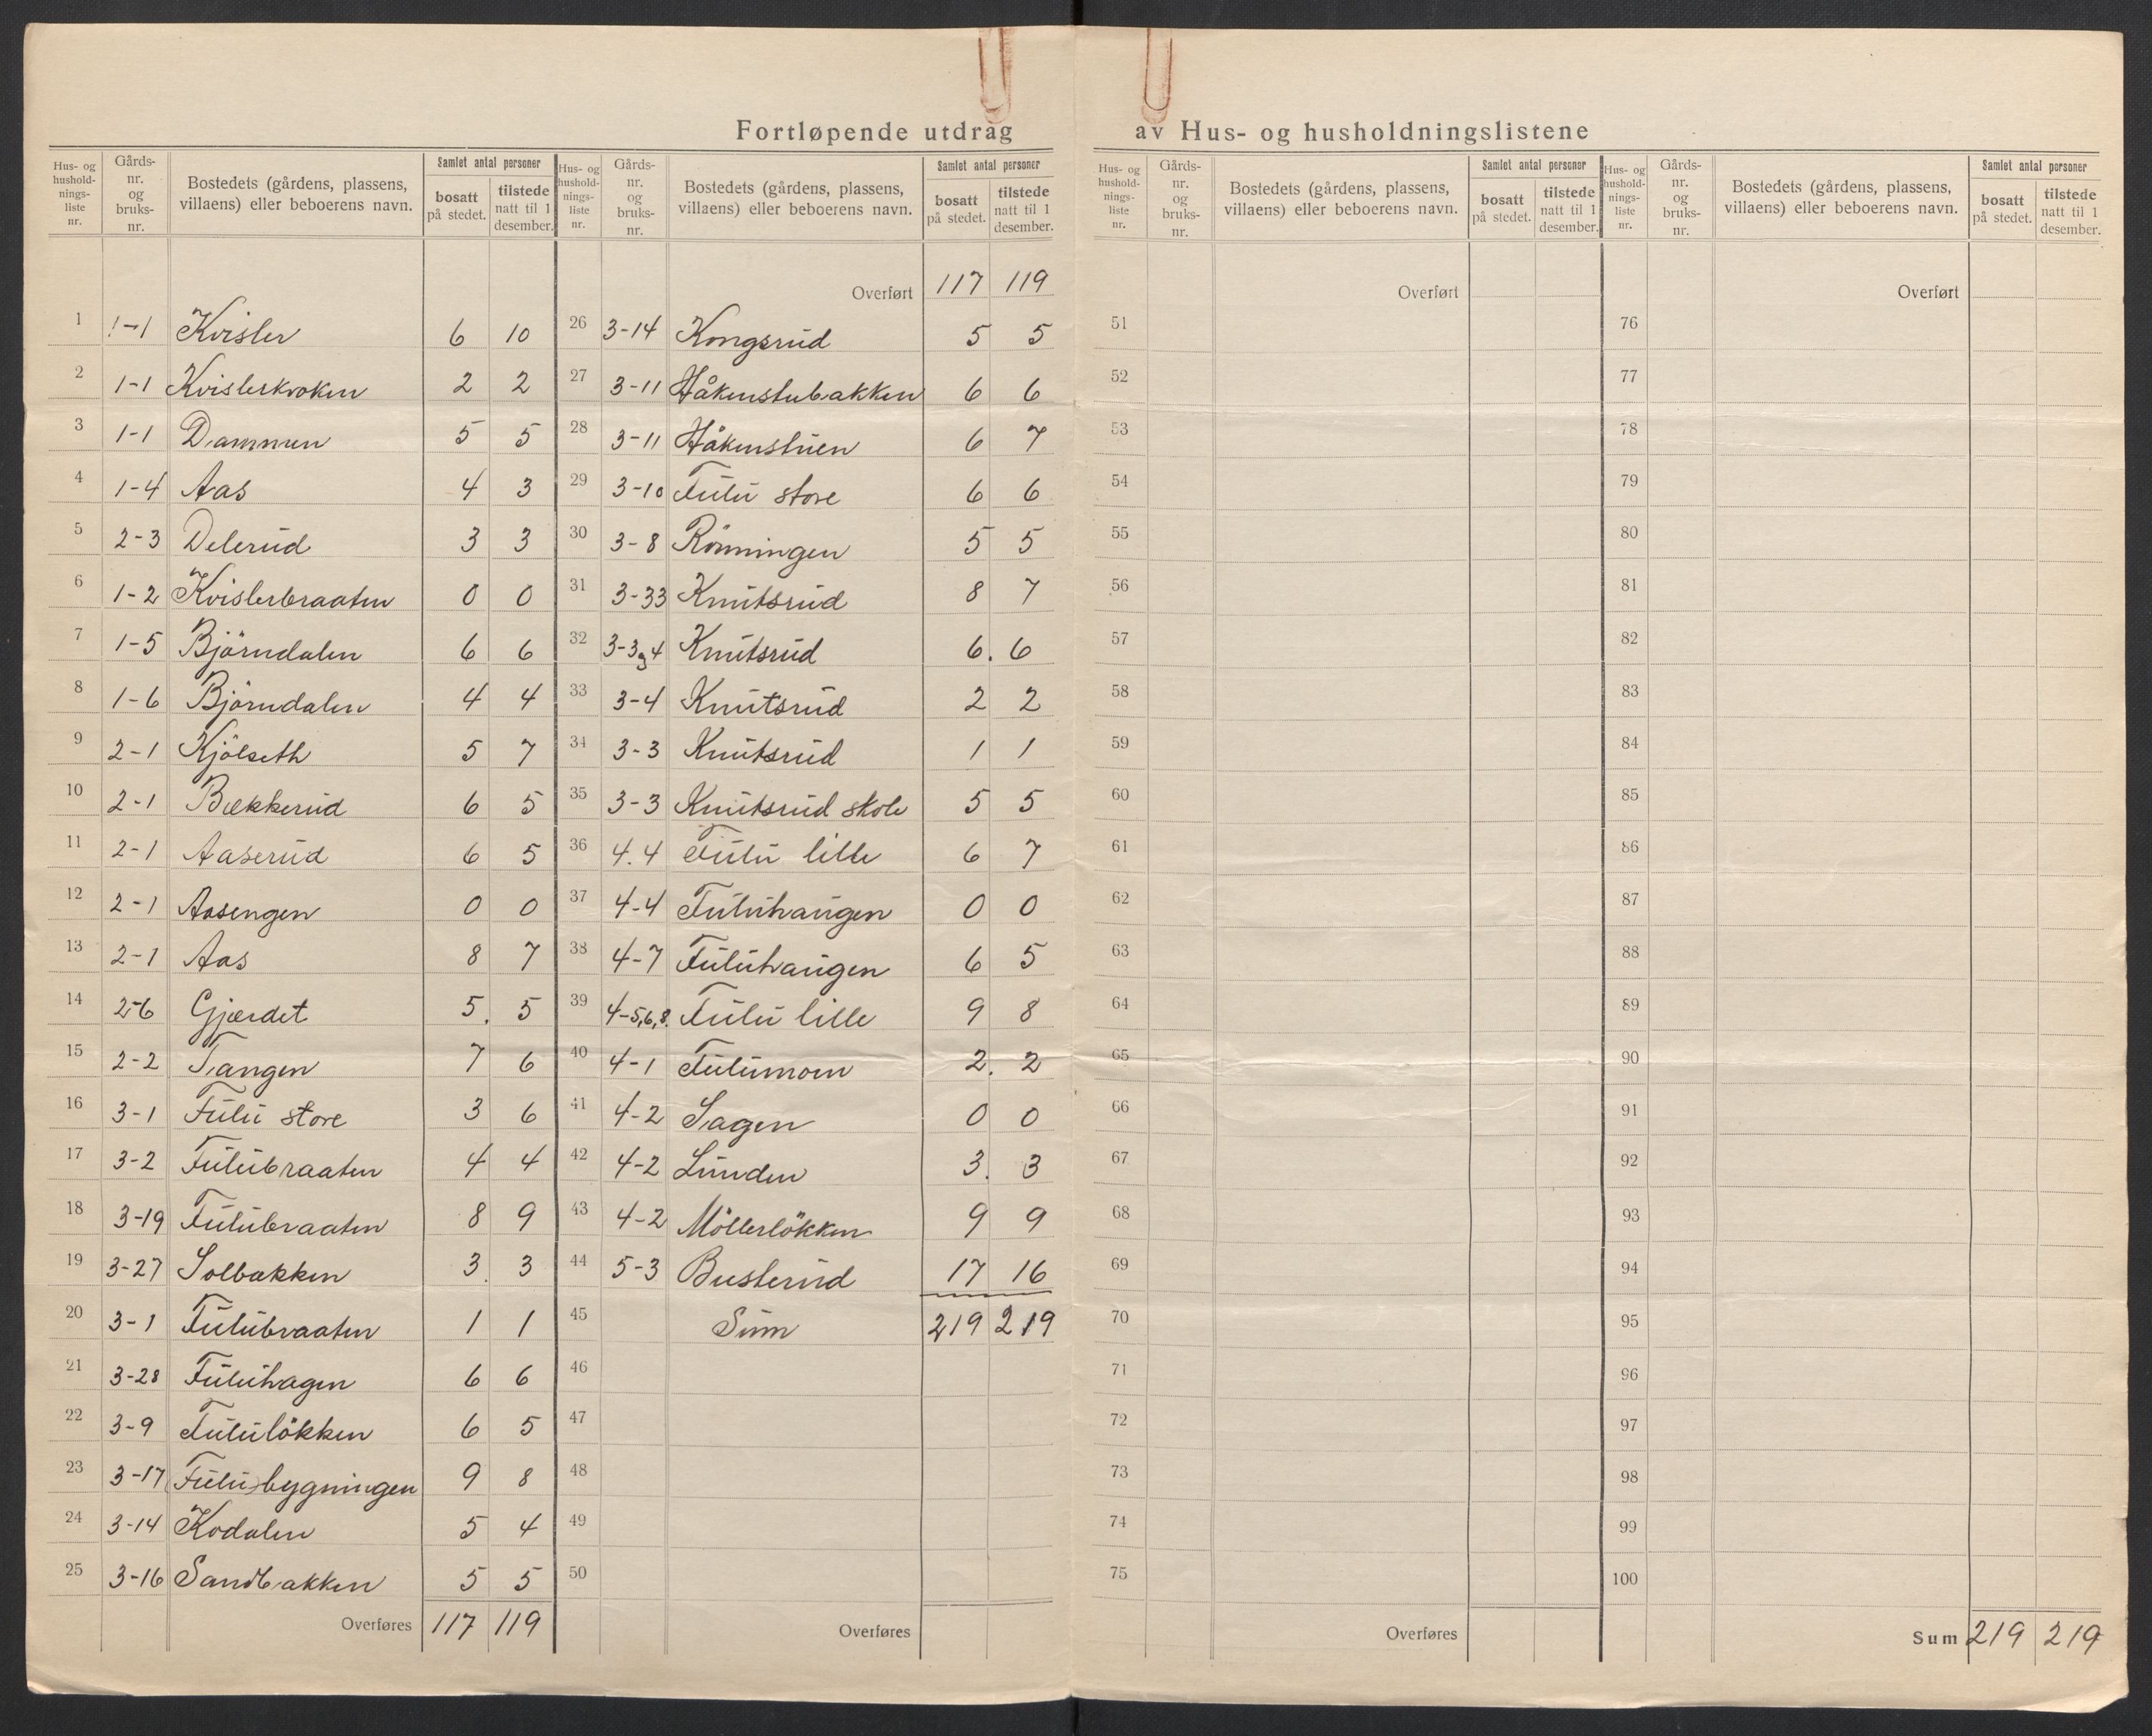 Fortløpende utdrag av Hus- og husholdningslistene
Hus- og hushold- nings- liste nr. Gårds- nr. og bruks- nr. Bostedets (gårdens, plassens, villaens) eller beboerens navn. Samlet antal personer bosatt på stedet. tilstede natt til 1 desember.
1 1-1 Kvisler 6 10
2 1-1 Kvislerkroken 2 2
3 1-1 Dammen 5 5
4 1-4 Aas 4 3
5 2-3 Delerud 3 3
6 1-2 Kvislerbraaten 0 0
7 1-5 Björndalen 6 6
8 1-6 Björndalen 4 4
9 2-1 Kjölseth 5 7
10 2-1 Bækkerud 6 5
11 2-1 Aaserud 6 5
12 2-1 Aasengen 0 0
13 2-1 Aas 8 7
14 2-6 Gjærdet 5. 5
15 2-2 Tangen 7 6
16 3-1 Fulu store 3 6
17 3-2 Fulubraaten 4 4
18 3-19 Fulubraaten 8 9
19 3-27 Solbakken 3. 3
20 3-1 Fulubraaten 1 1
21 3-28 Fuluhagen 6 6
22 3-9 Fululökken 6 5
23 3-17 (Fulu) bygningen 9 8
24 3-14 Kodalen 5 4
25 3-16 Sandbakken 5 5
Overføres 117 119
Hus- og hushold- nings- liste nr. Gårds- nr. og bruks- nr. Bostedets (gårdens, plassens, villaens) eller beboerens navn. Samlet antal personer bosatt på stedet. tilstede natt til 1 desember.
Overført 117 119
26 3-14 Kongsrud 5 5
27 3-11 Håkenstubakken 6 6
28 3-11 Håkenstuen 6 7
29 3-10 Fulu store 6 6
30 3-8 Rönningen 5 5
31 3-33 Knutsrud 8 7
32 3-3og4 Knutsrud 6. 6
33 3-4 Knutsrud 2 2
34 3-3 Knutsrud 1 1
35 3-3 Knutsrud skole 5 5
36 4.4 Fulu lille 6 7
37 4-4 Fuluhaugen 0 0
38 4-7 Fuluhaugen 6 5
39 4-5,6,8. Fulu lille 9 8
40 4-1 Fulumoen 2. 2
41 4-2 Sagen 0 0
42 4-2 Lunden 3. 3
43 4-2 Möllerlökken 9 9
44 5-3 Busterud 17 16
45 Sum 219 219
46
47
48
49
50
Overføres
Hus- og hushold- nings- liste nr. Gårds- nr. og bruks- nr. Bostedets (gårdens, plassens, villaens) eller beboerens navn. Samlet antal personer bosatt på stedet. tilstede natt til 1 desember.
Overført
51
52
53
54
55
56
57
58
59
60
61
62
63
64
65
66
67
68
69
70
71
72
73
74
75
Overføres
Hus- og hushold- nings- liste nr. Gårds- nr. og bruks- nr. Bostedets (gårdens, plassens, villaens) eller beboerens navn. Samlet antal personer bosatt på stedet. tilstede natt til 1 desember.
Overført
76
77
78
79
80
81
82
83
84
85
86
87
88
89
90
91
92
93
94
95
96
97
98
99
100
Sum 219 219